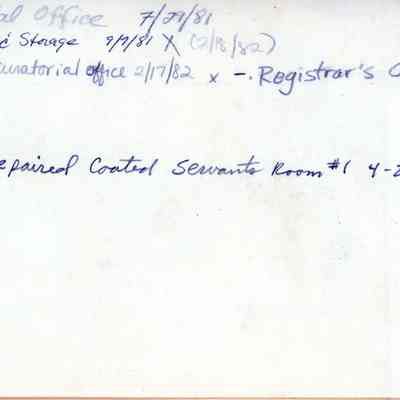 al Office 7/29/81
c Storage 9/9/81 X (2/18/82)
Curatorial office 2/17/82 x -. Registrar's O
epaired Coated Servants Room #1 4-2